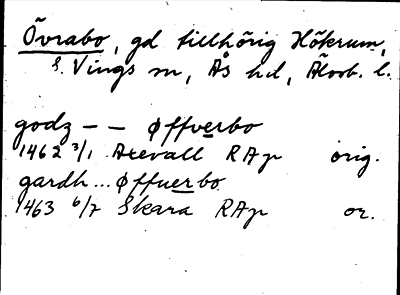 Övrabo, gd tillhörig Hökerum,
S. Vings sn, Ås hd, Älvsb. l.
godz – – øffverbo
1462 3/1 Axevall RAp orig.
gardh ... Øffuerbo
1463 6/7 Skara RAp or.